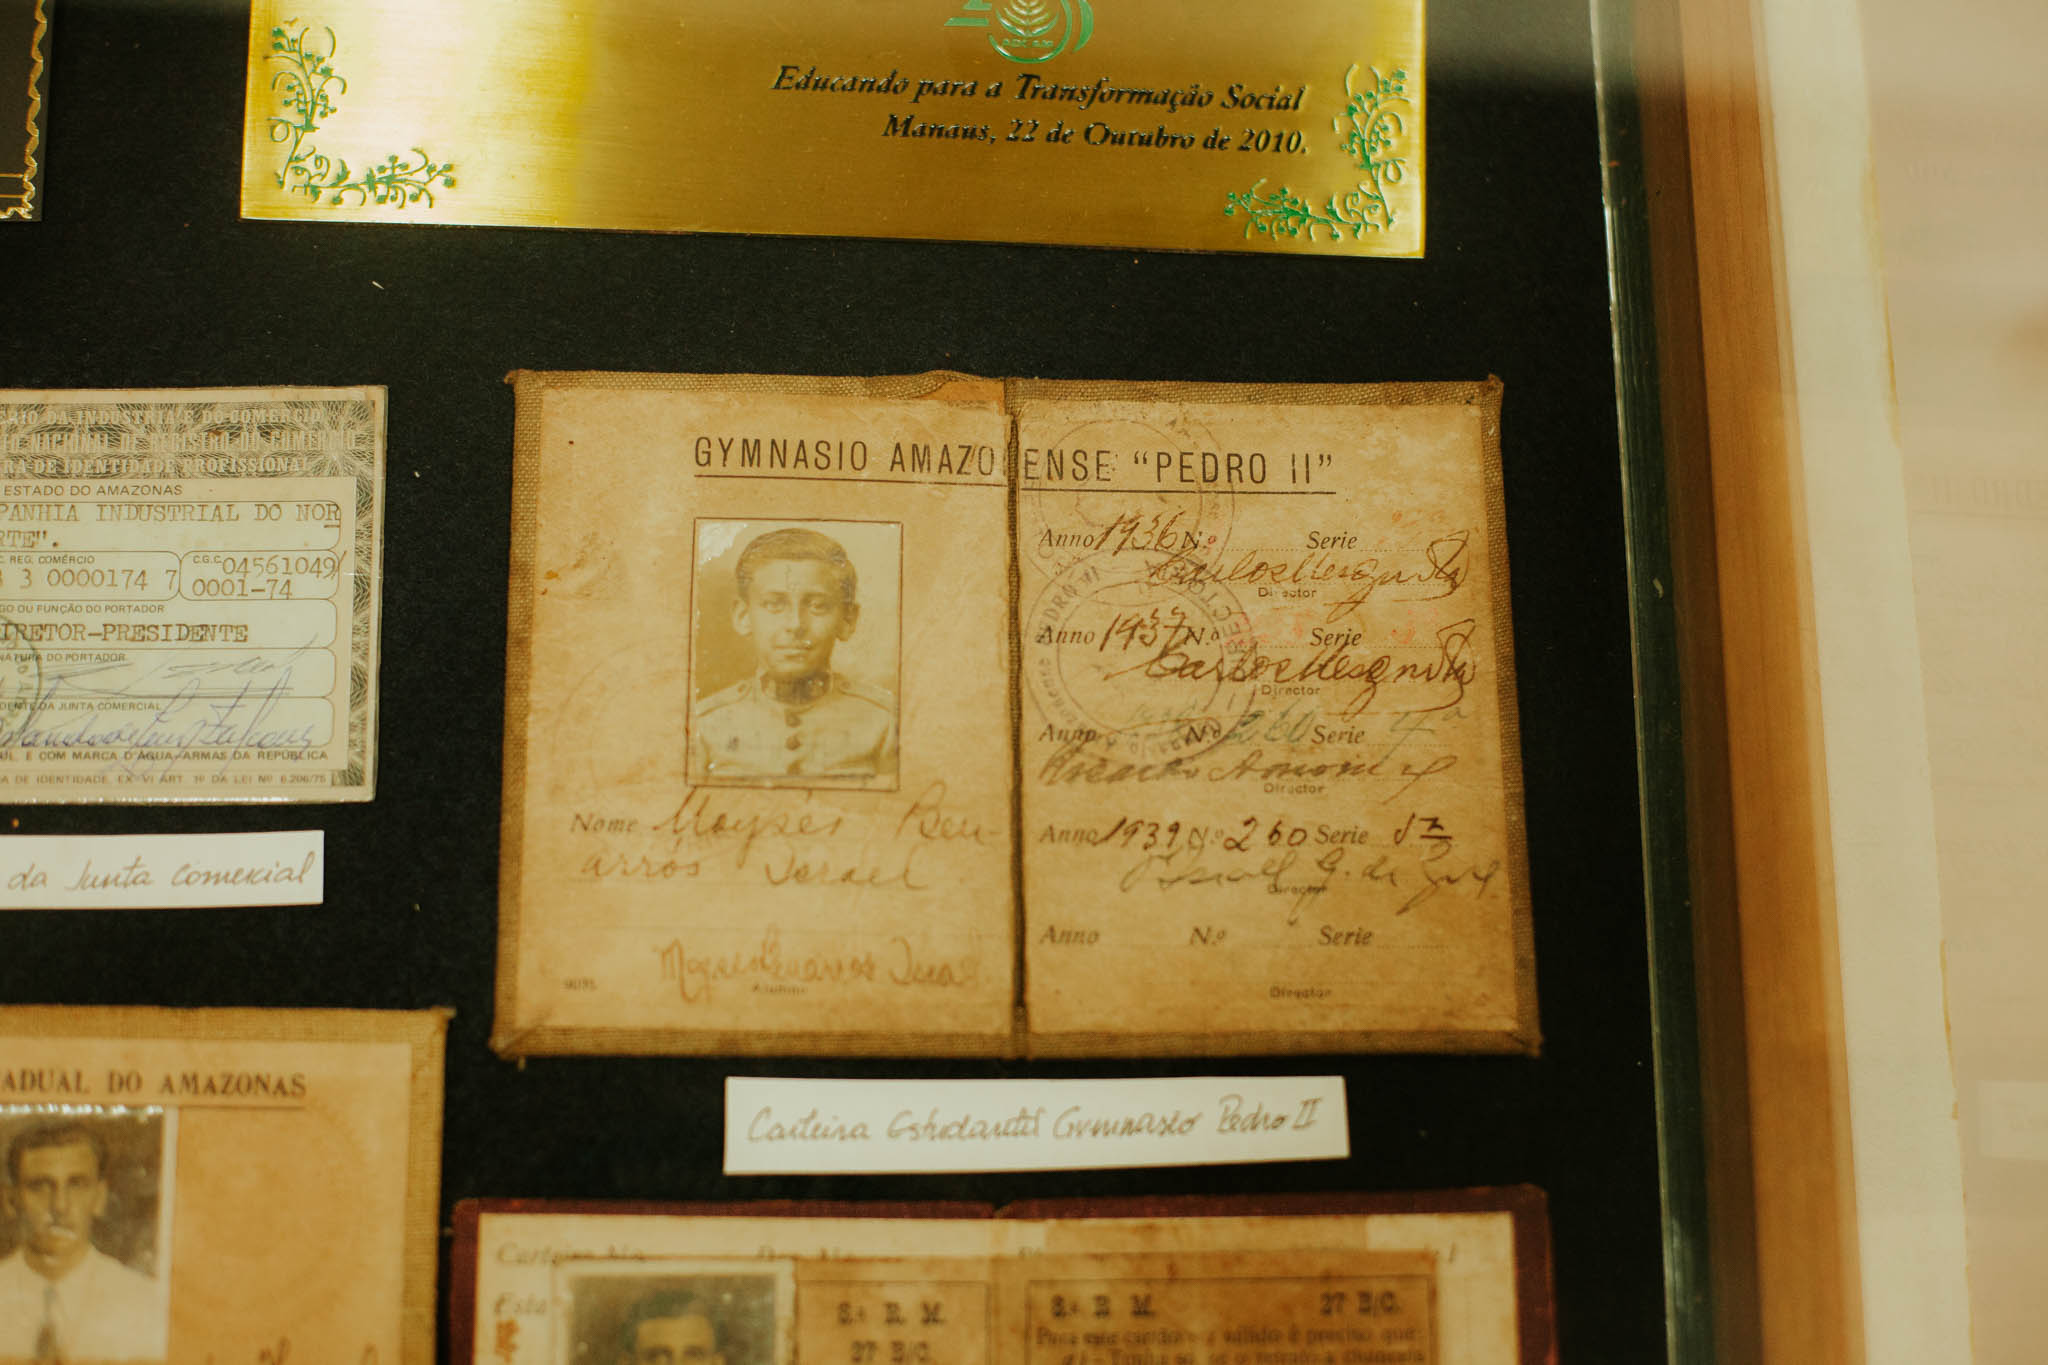 Educando para a Transformação Social
Manaus, 22 de Outubro de 2010.
DA INDÚSTRIA E DO COMÉRCIO
NACIONAL DE REGISTRO DO COMÉRCIO
DE IDENTIDADE PROFISSIONAL
ESTADO DO AMAZONAS
PANHIA INDUSTRIAL DO NOR
RTE".
REG. COMÉRCIO
3 0000174 7
C.G.C. 04561049/
0001-74
GO OU FUNÇÃO DO PORTADOR
IRETOR-PRESIDENTE
NATURA DO PORTADOR
DENTE DA JUNTA COMERCIAL
E COM MARCA D'ÁGUA-ARMAS DA REPÚBLICA
DE IDENTIDADE EX-VI ART. 1º DA LEI Nº 6.206/75
da Junta Comercial
GYMNASIO AMAZONENSE "PEDRO II"
Nome Moysés Ben-
arrós Israel
Moysés Benarrós Israel
Alumno
Anno 1936 N.º Serie
Carlos Mesquita
Director
Anno 1937 N.º Serie
Carlos Mesquita
Director
Anno N.º 260 Serie 4ª
Director
Anno 1939 N.º 260 Serie 5ª
Director
Anno N.º Serie
Director
Carteira Estudantil Gymnasio Pedro II
ADUAL DO AMAZONAS
S.ª R. M.
27 B/C.
S.ª R. M. 27 B/C.